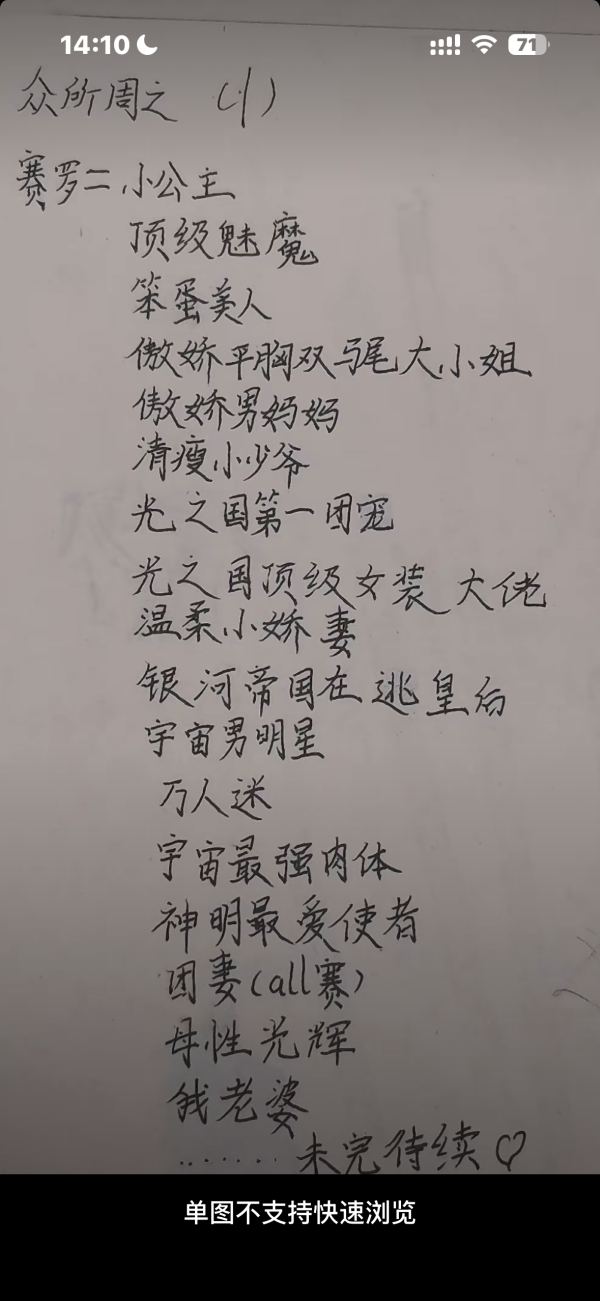 14:10
71
众所周之 (小)
赛罗=小公主
顶级魅魔
笨蛋美人
傲娇平胸双马尾大小姐
傲娇男妈妈
清瘦小少爷
光之国第一团宠
光之国顶级女装大佬
温柔小娇妻
银河帝国在逃皇后
宇宙男明星
万人迷
宇宙最强肉体
神明最爱使者
团妻(all赛)
母性光辉
我老婆
......未完待续♡
单图不支持快速浏览